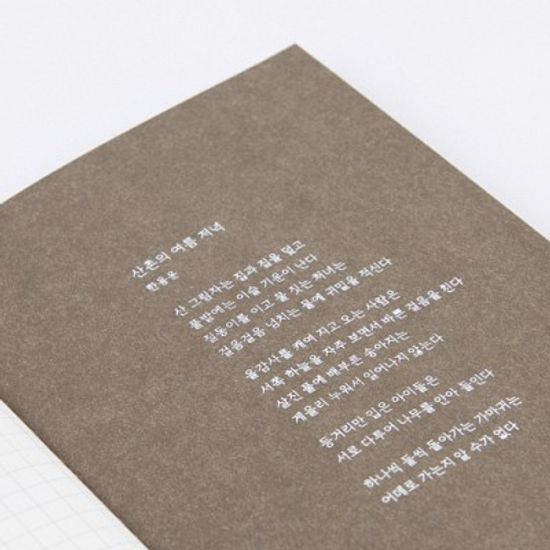 산촌의 여름 저녁
한용운
산 그림자는 집과 집을 덮고
풀밭에는 이슬 기운이 난다
질동이를 이고 물 짓는 처녀는
걸음걸음 넘치는 물에 귀밑을 적신다
올감자를 캐여 지고 오는 사람은
서쪽 하늘을 자주 보면서 바쁜 걸음을 친다
살진 풀에 배부른 송아지는
게을리 누워서 일어나지 않는다
등거리만 입은 아이들은
서로 다투어 나무를 안아 들인다
하나씩 둘씩 돌아가는 가마귀는
어데로 가는지 알 수가 없다